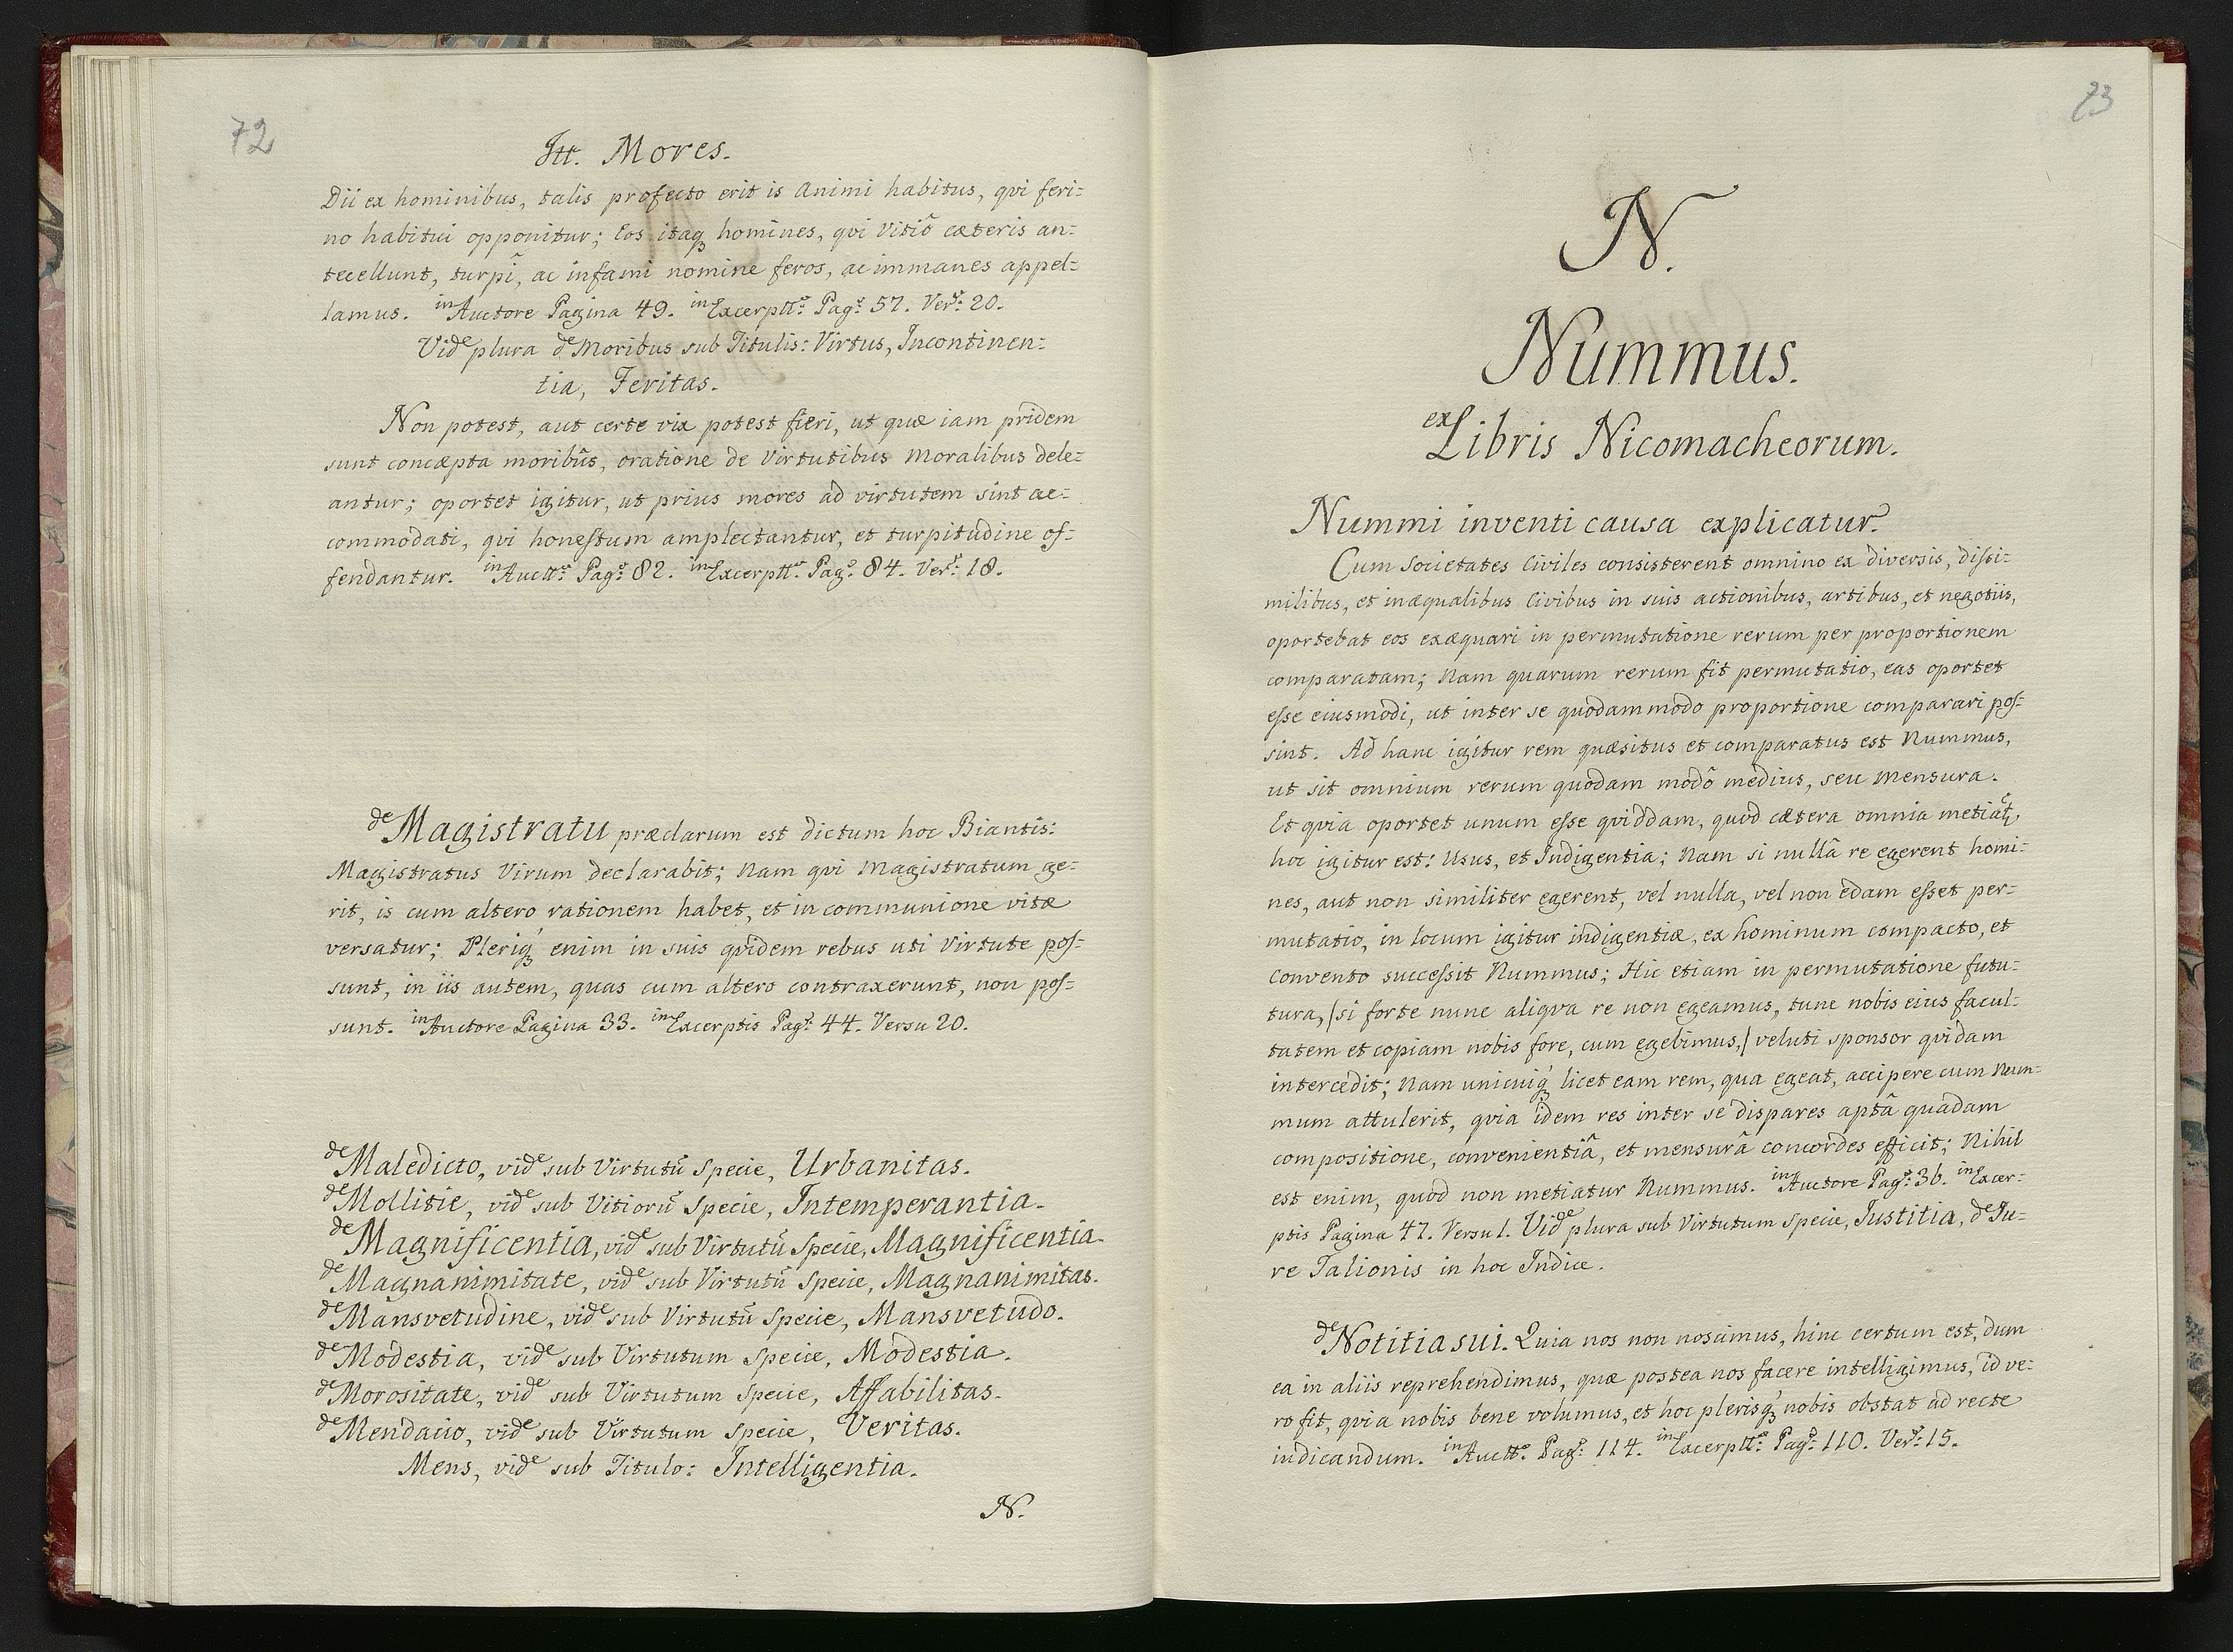 72
Itt. Mores.
Dii ex hominibus, talis profecto erit is Animi habitus, qvi feri=
no habitui opponitur; Eos itaqꝫ homines, qvi Vitiô cæteris an=
tecellunt, turpi, ac infami nomine feros, ac immanes appel=
lamus. in Auctore Pagina 49. in Excerptt: Pag: 57. Ver: 20.
Vide plura de Moribus sub Titulis: Virtus, Incontinen=
tia, Feritas.
Non potest, aut certe vix potest fieri, ut quæ iam pridem
sunt concæpta moribûs, oratione de Virtutibus Moralibus dele=
antur; oportet igitur, ut prius mores ad virtutem sint ac=
commodati, qvi honestum amplectantur, et turpitudine of=
fendantur. in Auctt: Pag: 82. in Excerptt: Pag: 84. Ver: 18.
de Magistratu præclarum est dictum hoc Biantis:
Magistratus Virum declarabit; Nam qvi Magistratum ge=
rit, is cum altero rationem habet, et in communione vitæ
versatur; Pleriqꝫ enim in suis qvidem rebus uti Virtute pos=
sunt, in iis autem, quas cum altero contraxerunt, non pos=
sunt. in Auctore Pagina 33. in Excerptis Pag: 44. Versu 20.
de Maledicto, vide sub Virtutũ Specie, Urbanitas.
de Mollitie, vide sub Vitiorũ Specie, Intemperantia.
de Magnificentia, vide sub Virtutũ Specie, Magnificentia.
de Magnanimitate, vide sub Virtutũ Specie, Magnanimitas.
de Mansvetudine, vide sub Virtutũ Specie, Mansvetudo.
de Modestia, vide sub Virtutum Specie, Modestia.
de Morositate, vide sub Virtutum Specie, Affabilitas.
de Mendacio, vide sub Virtutum Specie, Veritas.
Mens, vide sub Titulo: Intelligentia.
N.
73
N.
Nummus.
ex Libris Nicomacheorum.
Nummi inventi causa explicatur.
Cum Societates Civiles consisterent omnino ex diversis, dissi=
milibus, et inæqualibus Civibus in suis actionibus, artibus, et negotiis,
oportebat eos exæquari in permutatione rerum per proportionem
comparatam; Nam quarum rerum fit permutatio, eas oportet
esse eiusmodi, ut inter se quodammodo proportione comparari pos=
sint. Ad hanc igitur rem quæsitus et comparatus est Nummus,
ut sit omnium rerum quodam modô medius, seu Mensura.
Et qvia oportet unum esse qviddam, quod cætera omnia metiatꝫ,
hoc igitur est: Usus, et Indigentia; Nam si nullâ re egerent homi=
nes, aut non similiter egerent, vel nulla, vel non edam esset per=
mutatio, in locum igitur indigentiæ, ex hominum compacto, et
convento successit Nummus; Hic etiam in permutatione futu=
tura, /si forte nunc aliqva re non egeamus, tunc nobis eius facul=
tatem et copiam nobis fore, cum egebimus,/ veluti sponsor qvidam
intercedit; Nam unicuiqꝫ licet eam rem, qua egeat, accipere cum Num=
mum attulerit, qvia idem res inter se dispares aptâ quadam
compositione, convenientiâ, et mensurâ concordes efficit; Nihil
est enim, quod non metiatur Nummus. in Auctore Pag: 36. in Excer=
ptis Pagina 47. Versu 1. Vide plura sub Virtutum Specie, Iustitia, de Iu=
re Talionis in hoc Indice.
de Notitia sui. Quia nos non noscimus, hinc certum est, dum
ea in aliis reprehendimus, quæ postea nos facere intelligimus, id ve=
ro fit, qvia nobis bene volumus, et hoc plerisqꝫ nobis obstat ad recte
iudicandum. in Auctt: Pag: 114. in Excerptt: Pag: 110. Ver: 15.